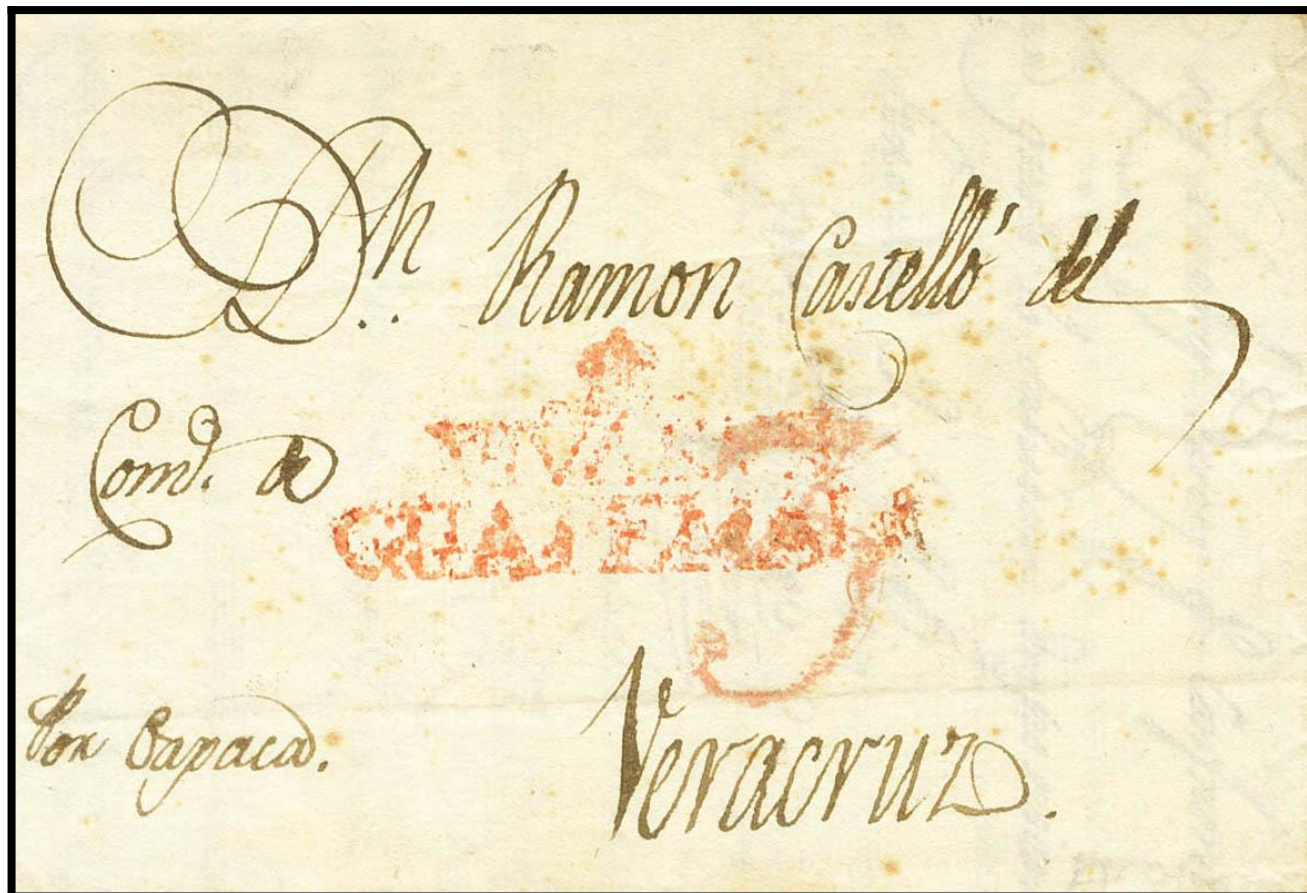 Dn. Ramon Castelló del
Com.d de
GUATEMALA
3
Por Oaxaca.
Veracruz.